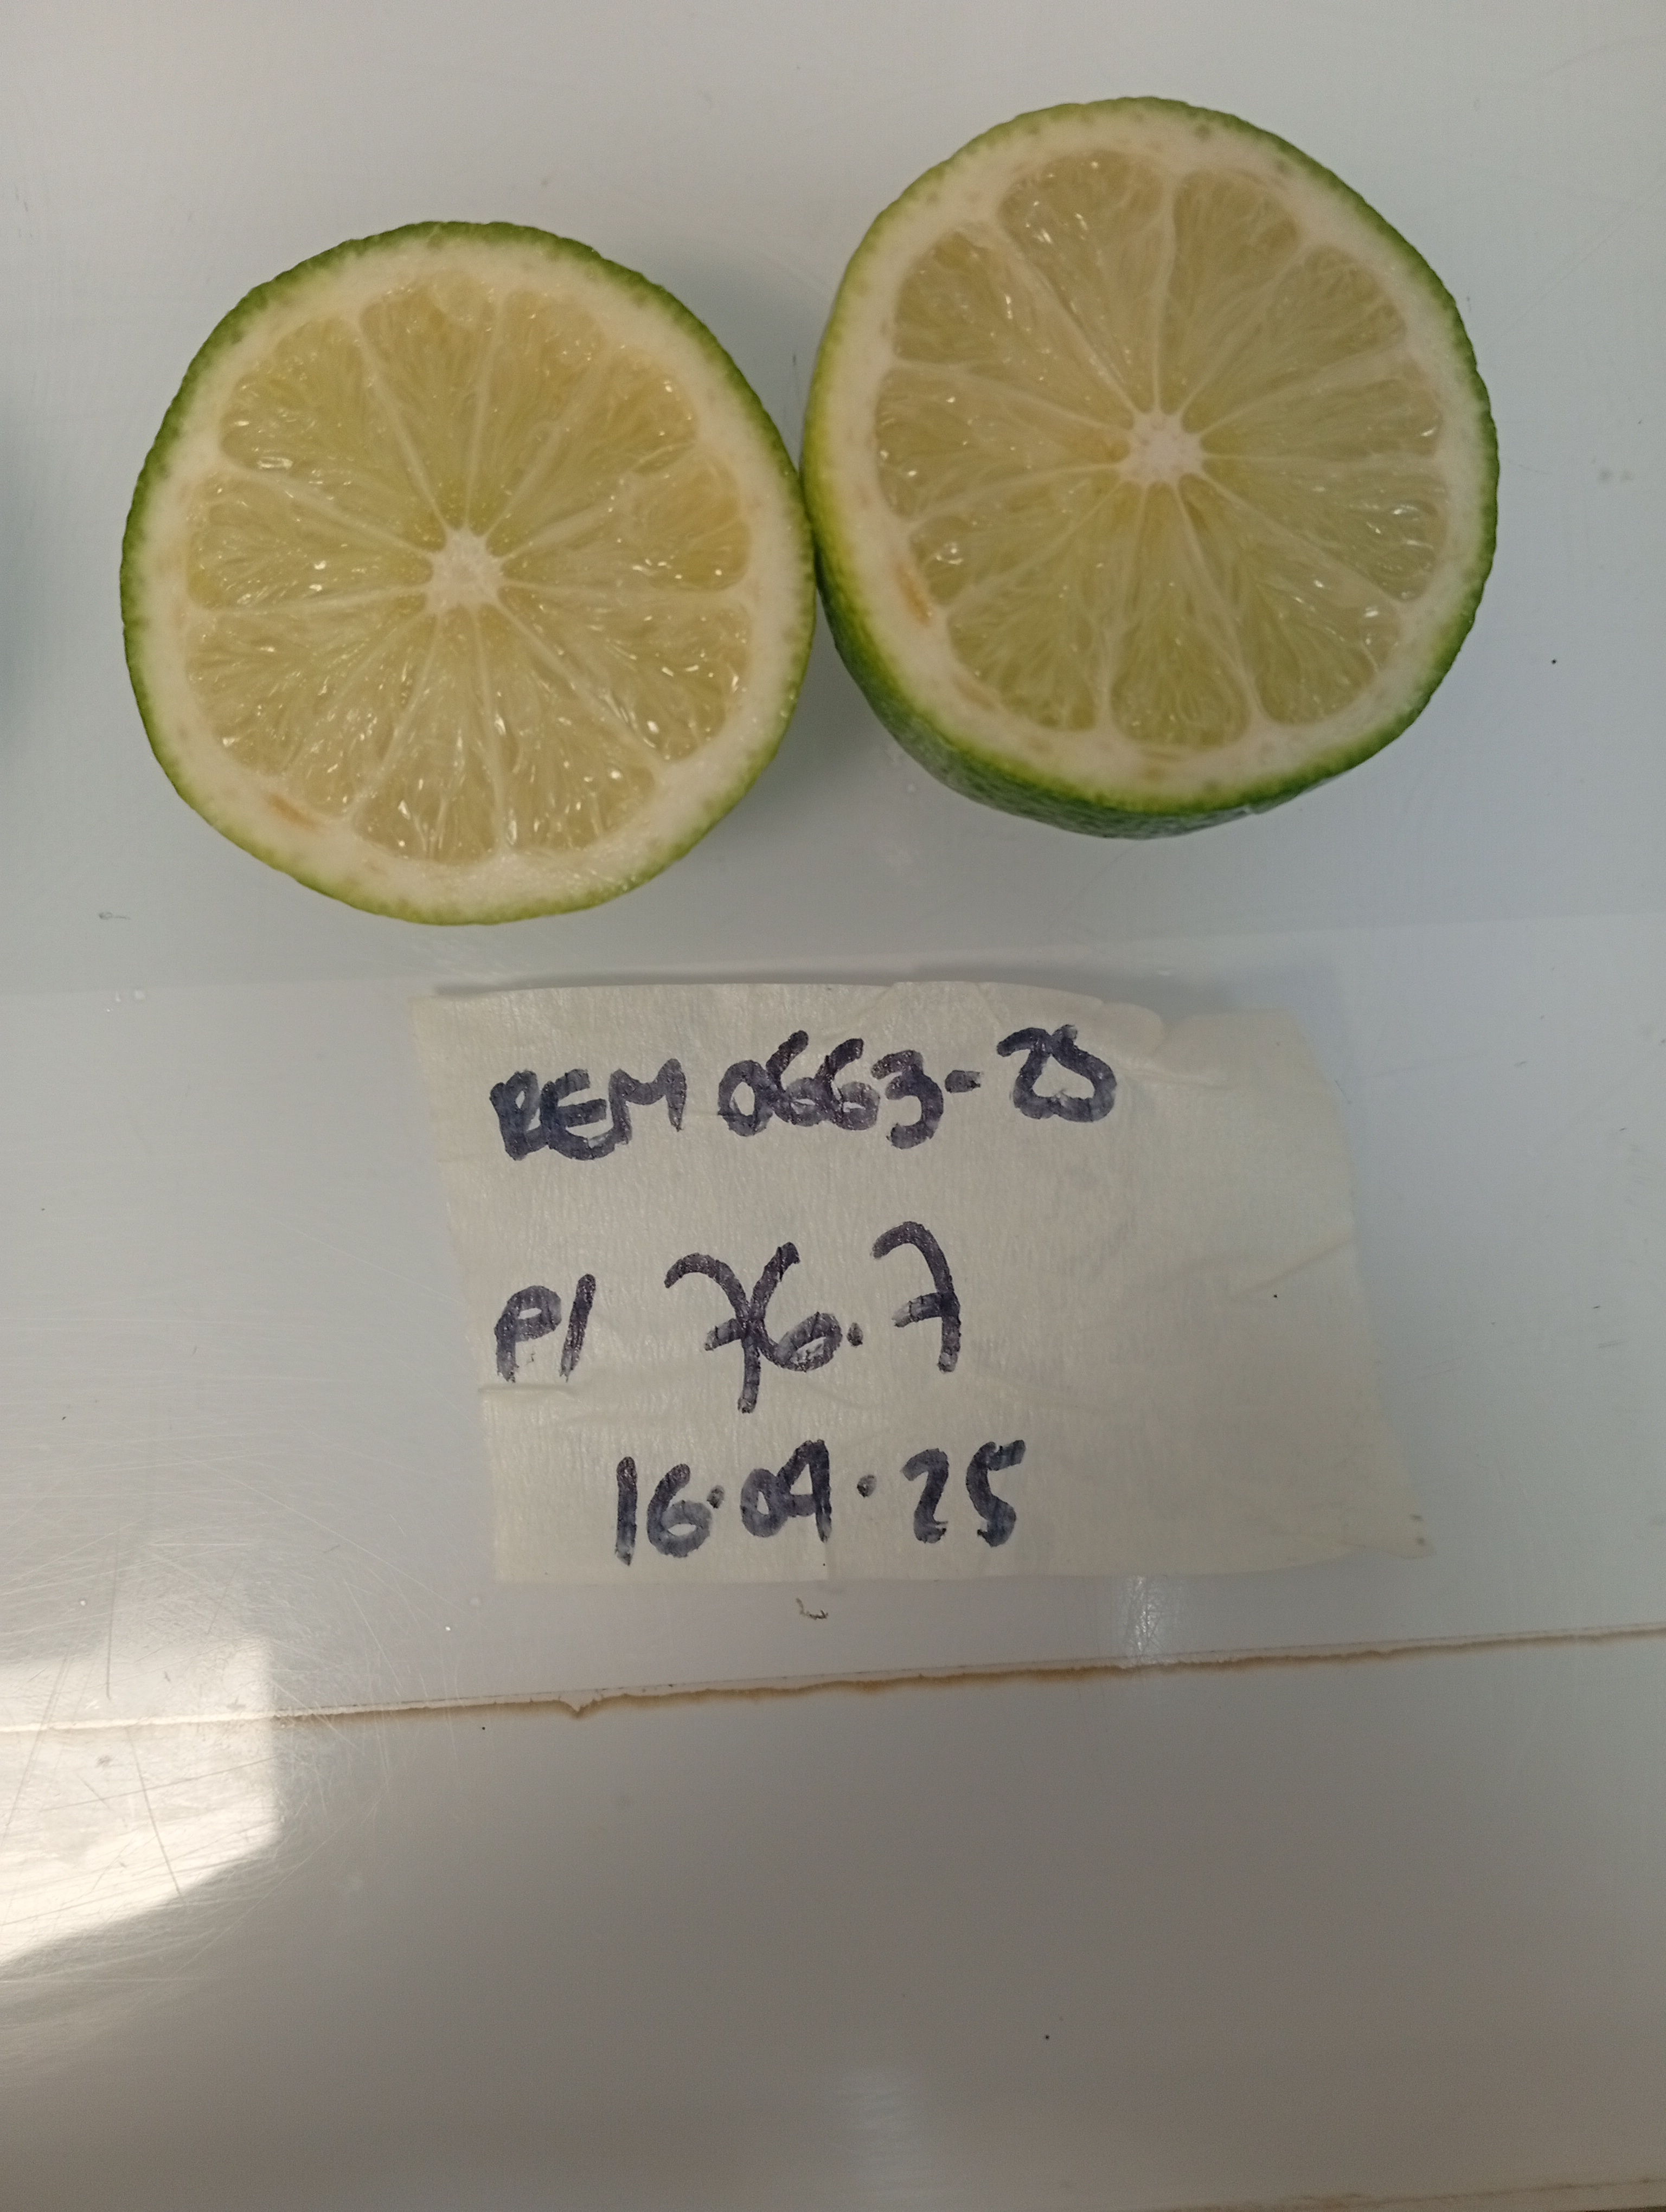 REM 0663-25
P1 76.7
16.04.25